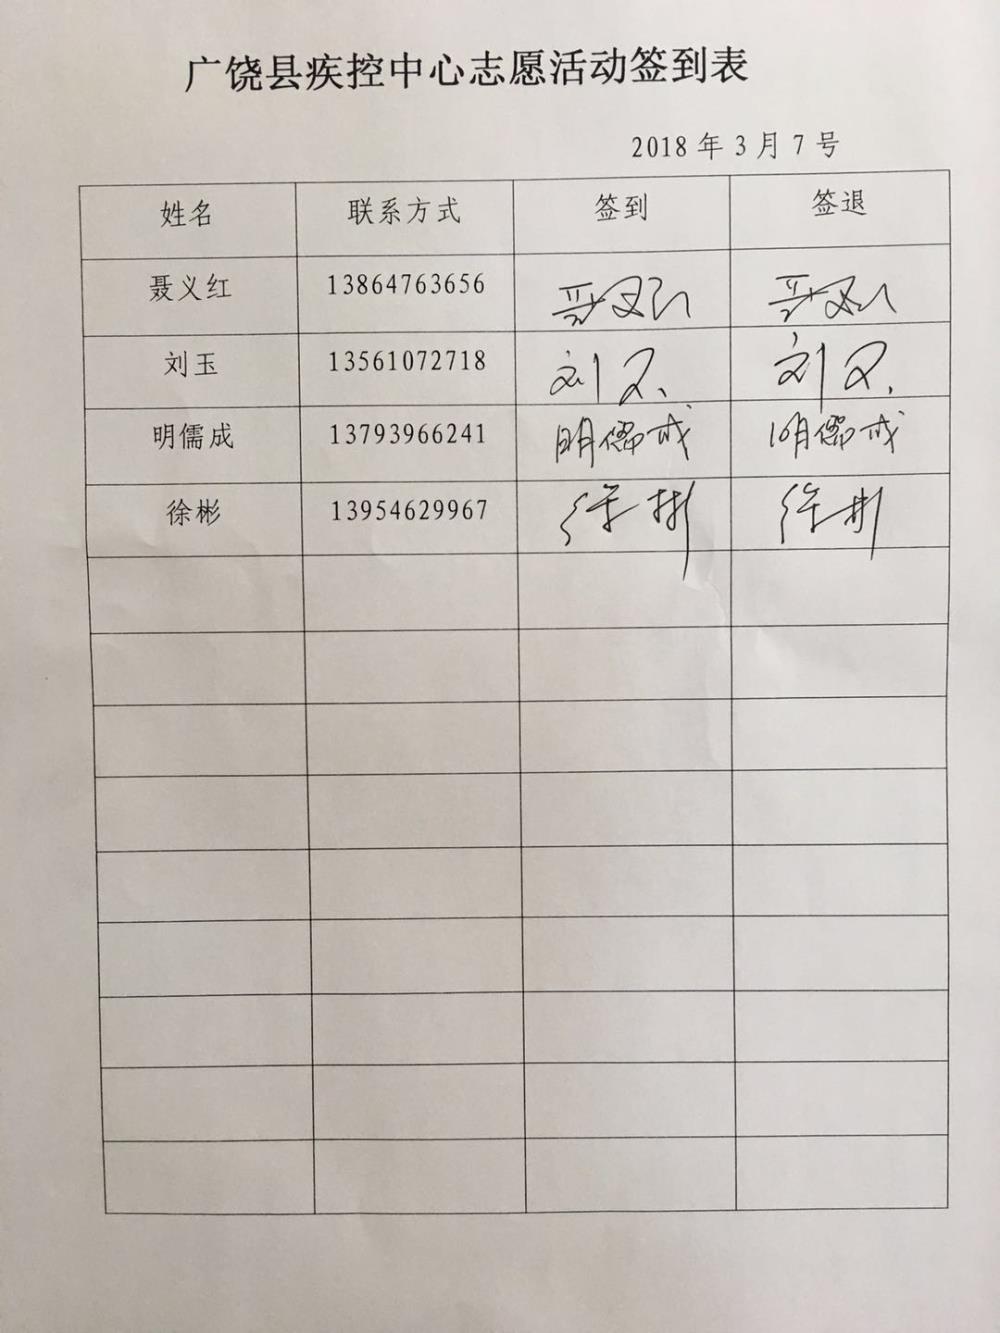 广饶县疾控中心志愿活动签到表
2018 年 3 月 7 号
姓名 联系方式 签到 签退
聂义红 13864763656 聂义红 聂义红
刘玉 13561072718 刘玉 刘玉
明儒成 13793966241 明儒成 明儒成
徐彬 13954629967 徐彬 徐彬